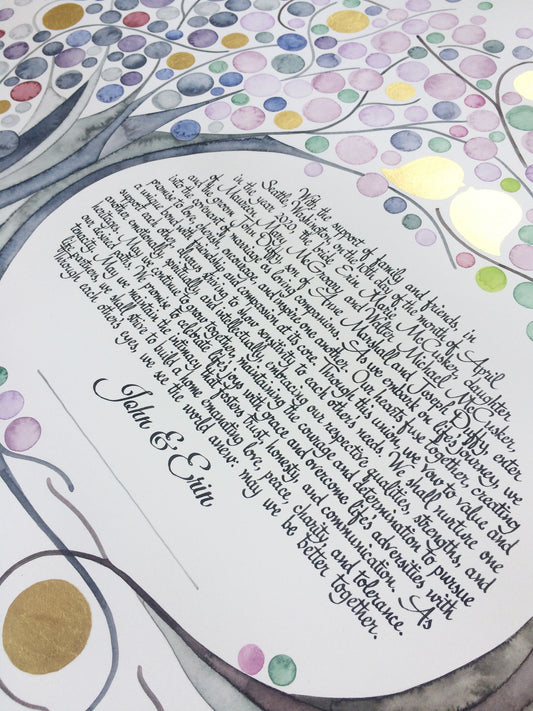 With the support of family and friends, in
Seattle, Washington, on the 10th day of the month of April
in the year 2020, the bride Erin Marie McCusker, daughter
of Maureen Mary McGreevy and Walter Michael McCusker,
and the groom John Duffy, son of Anne Marshall and Joseph Duffy, enter
into the covenant of marriage as loving companions. As we embark on life's journey, we
promise to love, cherish, encourage, and respect one another. Our hearts fuse together, creating
a unique bond with friendship and compassion at its core. Through this union, we vow to value and
support each other, always striving to show sensitivity to each other's needs. We shall nurture one
another emotionally, spiritually, and intellectually, embracing our respective qualities, strengths, and
heritages. May we continue to grow together, maintaining the courage and determination to pursue
our desired paths. We promise to celebrate life's joys with grace and overcome life's adversities with
tenacity. May we maintain the intimacy that fosters trust, honesty, and communication. As
life partners, we shall strive to build a home emanating love, peace, charity, and tolerance.
Through each other's eyes, we see the world anew: may we be better together.
John & Erin